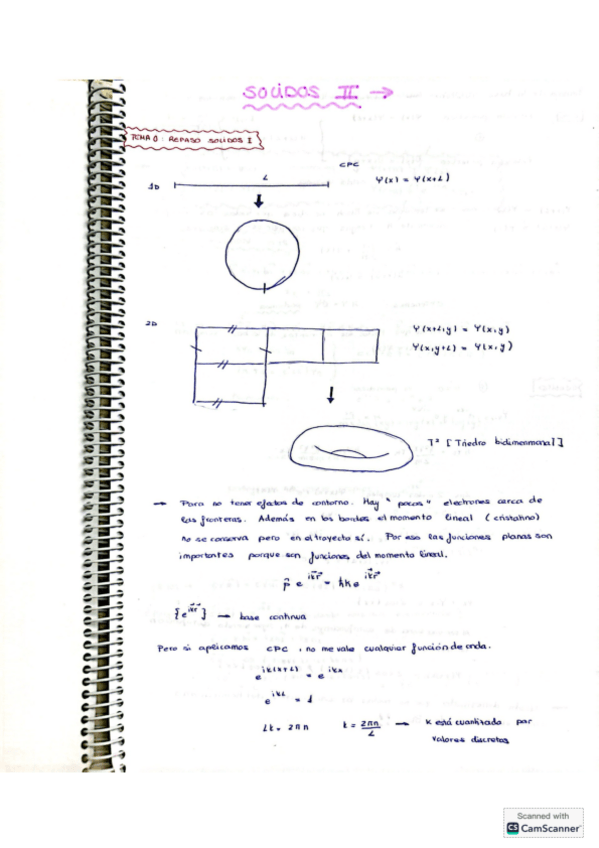 SOLIDOS II →
TEMA 0: REPASO SOLIDOS I
CPC
1D
L
Ψ(x) = Ψ(x+L)
2D
Ψ(x+L,y) = Ψ(x,y)
Ψ(x,y+L) = Ψ(x,y)
T² [Triedro bidimensional]
→ Para no tener efectos de contorno. Hay "pocos" electrones cerca de
las fronteras. Además en los bordes el momento lineal (cristalino)
no se conserva pero en el trayecto sí. Por eso las funciones planas son
importantes porque son funciones del momento lineal.
p̂ e^{ik⃗r⃗} = ħk e^{ik⃗r⃗}
{e^{ik⃗r⃗}} → base continua
Pero si aplicamos CPC, no me vale cualquier función de onda.
e^{ik(x+L)} = e^{ikx}
e^{ikL} = 1
Lk = 2πn k = 2πn/L → K está cuantizado por
valores discretos
Scanned with
CS CamScanner